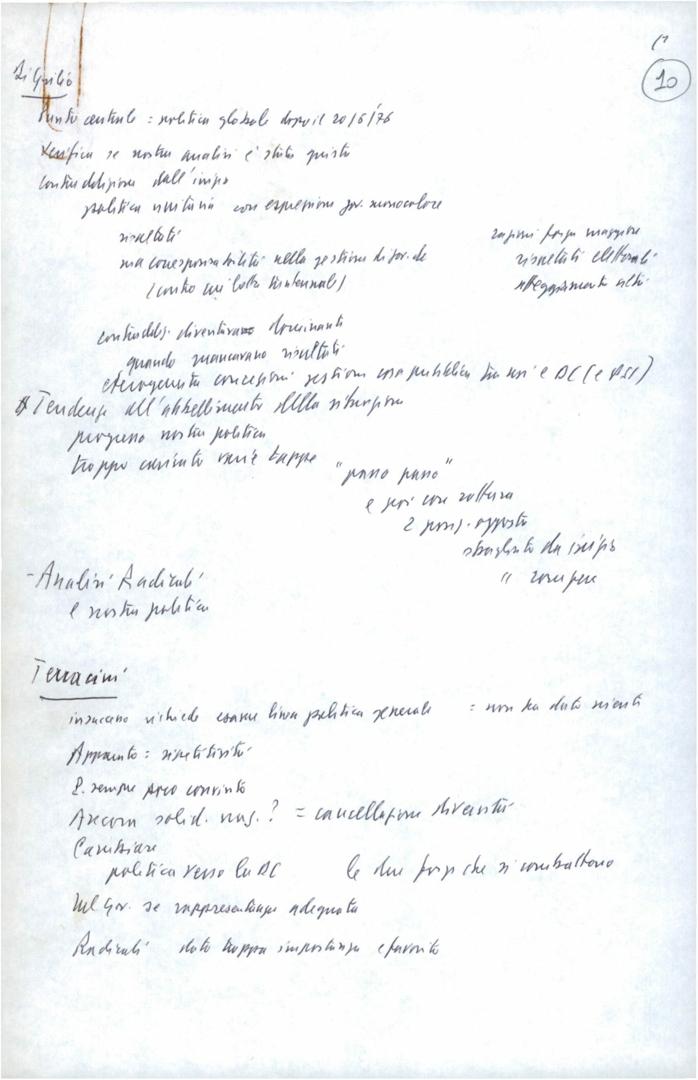 10
Di Giulio
Punto centrale = politica globale dopo il 20/6/76
Verifica se nostra analisi è stata giusta
contraddizione dall'inizio
politica unitaria con espressione gov. monocolore
risultati
ragioni forza maggiore
ma corresponsabilità nella gestione di gov. dc
risultati elettorali
(contro cui lotta trentennale)
atteggiamento altri
contradd. diventavano dominanti
quando mancavano risultati
eterogeneità concezioni gestione cosa pubblica tra noi e DC (e PSI)
Tendenza all'abbellimento della situazione
progresso nostra politica
troppo varie tappe
"passo passo"
e poi rottura
2 posiz. opposte
sbagliato da inizio
" rompere
- Analisi Radicali
e nostra politica
Terracini
richiede esame linea politica generale = non ha dato niente
Appunto = ripetitività
E. sempre poco convinto
Ancora solid. naz. ? = cancellazione diversità
Cambiare
politica verso la DC le due forze che si combattono
Nel Gov. se rappresentanza adeguata
Radicali dato troppa importanza e favorito